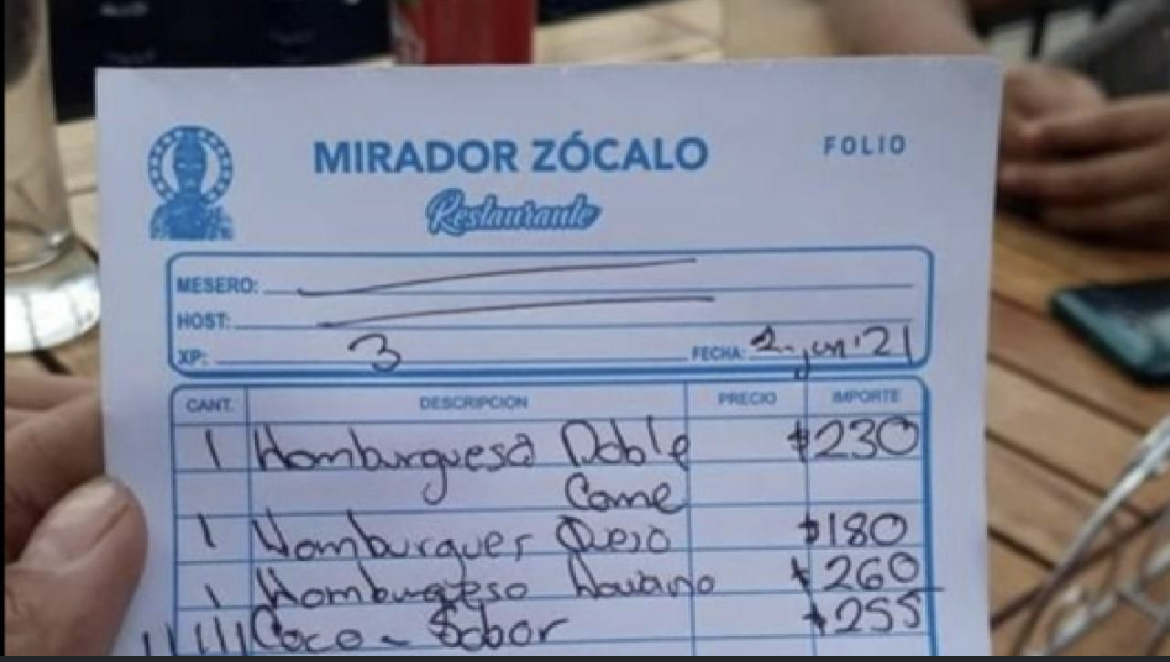 MIRADOR ZÓCALO
FOLIO
Restaurante
MESERO:
HOST:
XP: 3 FECHA: 2-jun'21
CANT. DESCRIPCION PRECIO IMPORTE
1 Hamburguesa Doble $230
Carne
1 Hamburguer Queso $180
1 Hamburguesa Hawaiano $260
11111 Coca - Sabor $255